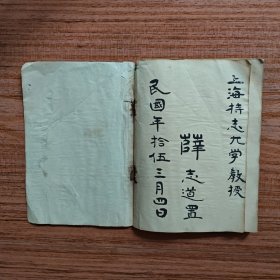 上海持志大学教授
薛志道置
民國年拾伍三月四日